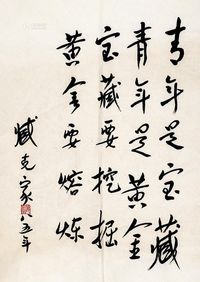 青年是宝藏
青年是黄金
宝藏要挖掘
黄金要熔炼
臧克家
八五年